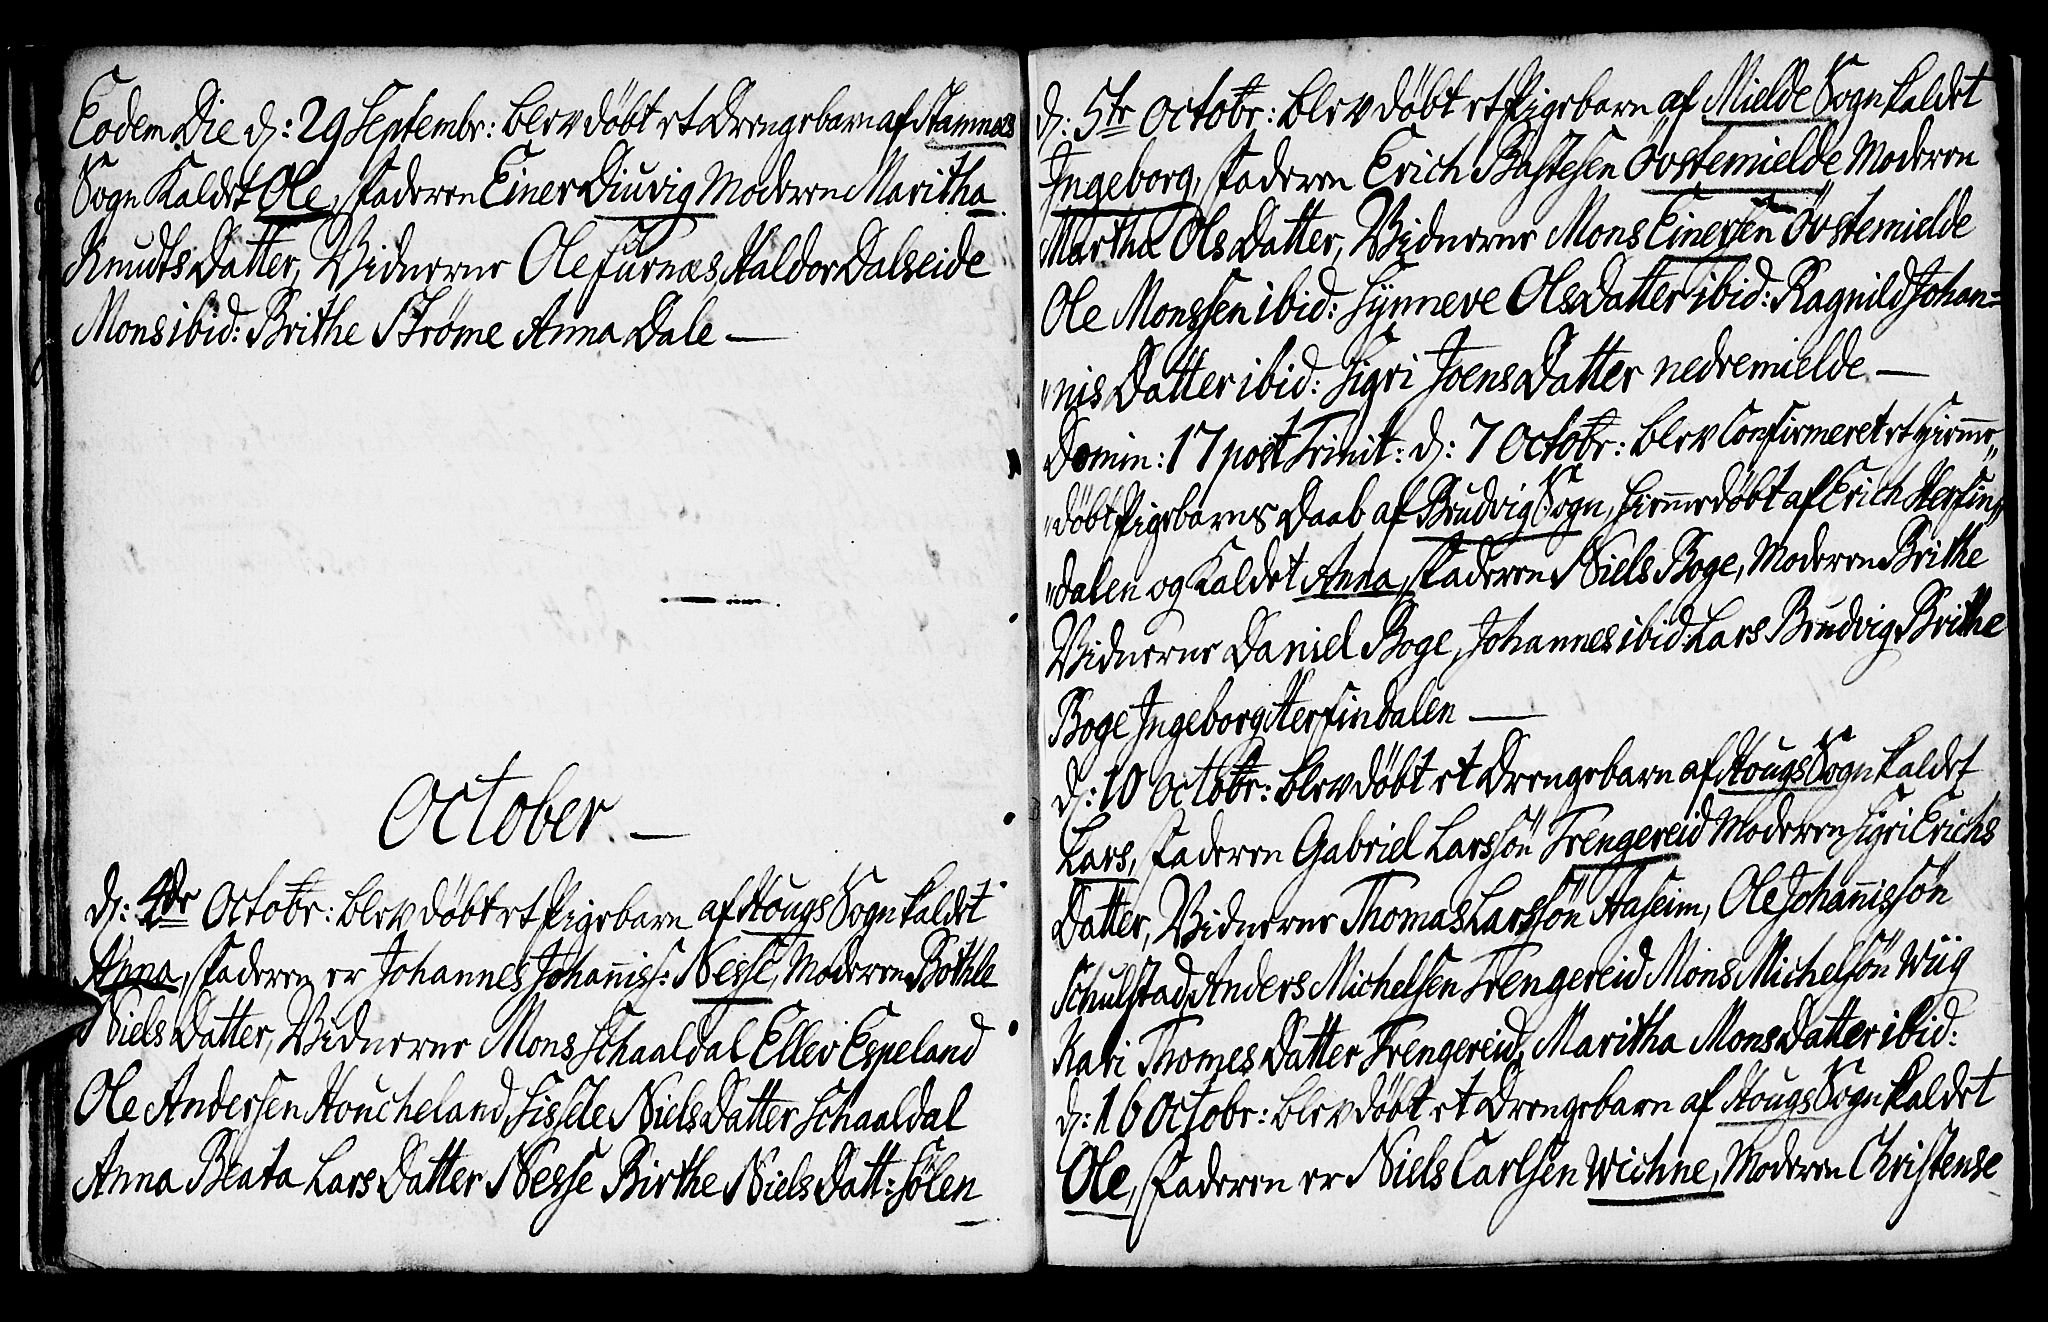 Eodem Die d: 29 Septembr: blev döbt et Drengebarn af Stamnæs
Sogn Kaldet Ole, Faderen Einer Diuvig Moderen Maritha
Knudts Datter, Vidnerne Ole Furnæs, Haldor Dalseide
Mons ibid: Brithe Strøme Anna Dale —
October. —
d: 4de Octobr: blev döbt et Pigebarn af Hougs Sogn kaldet
Anna, Faderen er Johannes Johaniss: Nesse, Moderen Bothle
Niels Datter, Vidnerne Mons Schaaldal Ellev Espeland
Ole Andersen Houcheland, Sissele Niels Datter Schaaldal
Anna Beata Lars Datter Nesse Birthe Niels Datt: Sølen
d: 5te Octobr: blev döbt et Pigebarn af Mielde Sogn kaldet
Ingeborg, Faderen Erich Bastesen Övstemielde Moderen
Martha Ols Datter, Vidnerne Mons Einersen Övstemielde
Ole Monssen ibid: Synneve Ols Datter ibid: Ragnild Johan=
nis Datter ibid: Sigri Joens Datter nedremielde —
Domin: 17 post Trinit: d: 7 Octobr: blev Confirmeret et hieme„
„döbt Pigebarns Daab af Brudvig Sogn, hiemedöbt af Erich Herfin„
„dalen og Kaldet Anna, Faderen Niels Boge, Moderen Brithe
Vidnerne Daniel Boge, Johannes ibid: Lars Brudvig, Brithe
Boge Ingeborg Herfindalen —
d: 10 Octobr: blev döbt et Drengebarn af Hougs Sogn kaldet
Lars, Faderen Gabriel Larssön Trengereid Moderen Sigri Erichs
Datter, Vidnerne Thomas Larssön Haseim, Ole Johannissön
Schulstad, Anders Michelsen Trengereid Mons Michelsön Wiig
Kari Thomes Datter Trengereid, Maritha Mons Datter ibid:
d: 16 Octobr: blev döbt et Drengebarn af Hougs Sogn kaldet
Ole, Faderen er Niels Carlsen Wichne, Moderen Christense